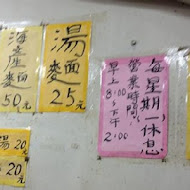 每星期一休息
營業時間:
早上8:00~下午2:00
湯麵
25元
海產麵
50元
湯20
20元